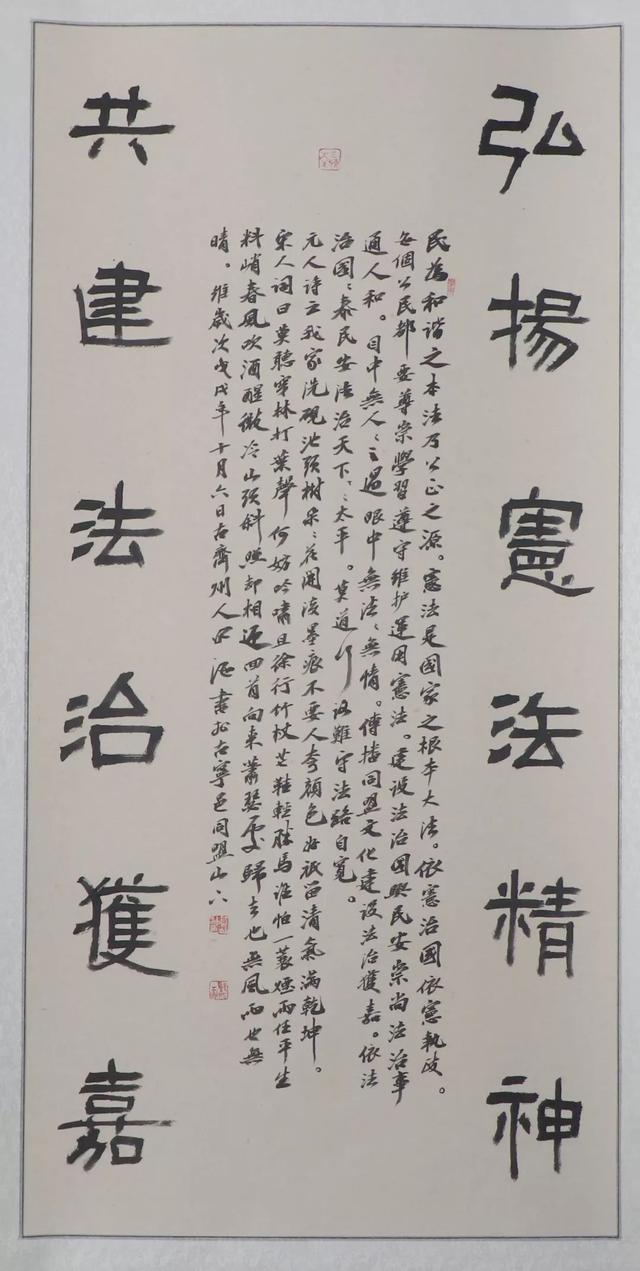 弘揚憲法精神
民為和諧之本法乃公正之源。憲法是國家之根本大法。依憲治國依憲執政。
每個公民都要尊崇學習遵守維护運用憲法。建设法治國興民安崇尚法治事
通人和。目中無人〻之過眼中無法〻無情。傳播同盟文化建设法治獲嘉。依法
治國〻泰民安法治天下〻太平。莫道行路難守法路自寬。
元人诗云我家洗硯池頭樹朵〻花開淡墨痕不要人夸顔色好祇留清氣滿乾坤。
宋人詞曰莫聽穿林打葉聲何妨吟嘯且徐行竹杖芒鞋輕勝馬谁怕一蓑煙雨任平生
料峭春風吹酒醒微冷山頭斜照却相迎回首向來蕭瑟處歸去也無風雨也無
晴。維歲次戊戌年十月六日古齊州人書於古寧邑同盟山下
共建法治獲嘉